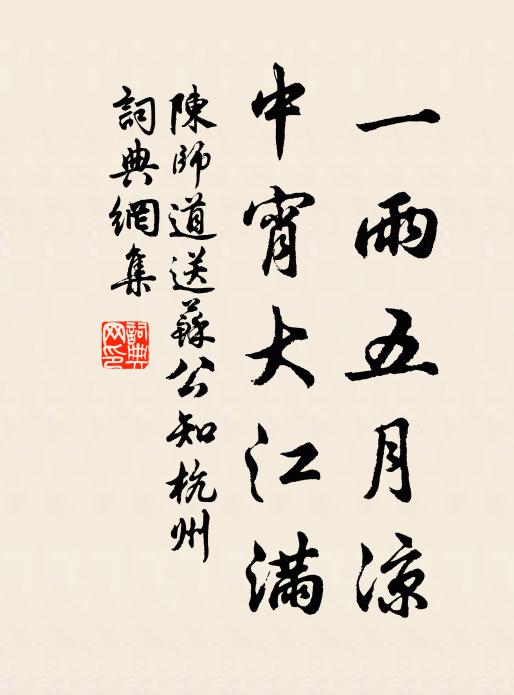 一雨五月涼
中宵大江滿
陳師道送蘇公知杭州
詞典網集
詞典
网印